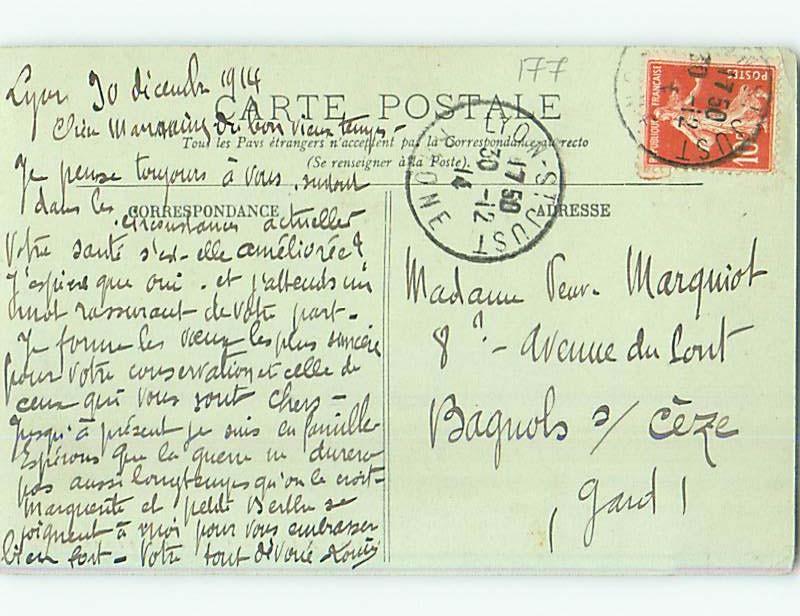 177
Lyon 30 décembre 1914
CARTE POSTALE
Chère Marraine du bon vieux temps -
Tous les Pays étrangers n'acceptent pas la Correspondance au recto
(Se renseigner à la Poste).
Je pense toujours à vous, surtout
dans les circonstances actuelles
CORRESPONDANCE
Votre santé s'est-elle améliorée?
J'espère que oui - et j'attends un
mot rassurant de votre part -
Je forme les vœux les plus sincères
pour votre conservation et celle de
ceux qui vous sont chers -
Jusqu'à présent je suis en famille
Espérons que la guerre ne durera
pas aussi longtemps qu'on le croit -
Marguerite et petite Berthe se
joignent à moi pour vous embrasser
bien fort - Votre tout dévoué Louis
ADRESSE
Madame Veuve Marquiot
8 ? - Avenue du Pont
Bagnols s/ Cèze
(Gard)
LYON-ST JUST
17 50
30 -12
14
RHONE
REPUBLIQUE FRANÇAISE
POSTES
10
17 50
30 -12
ST JUST